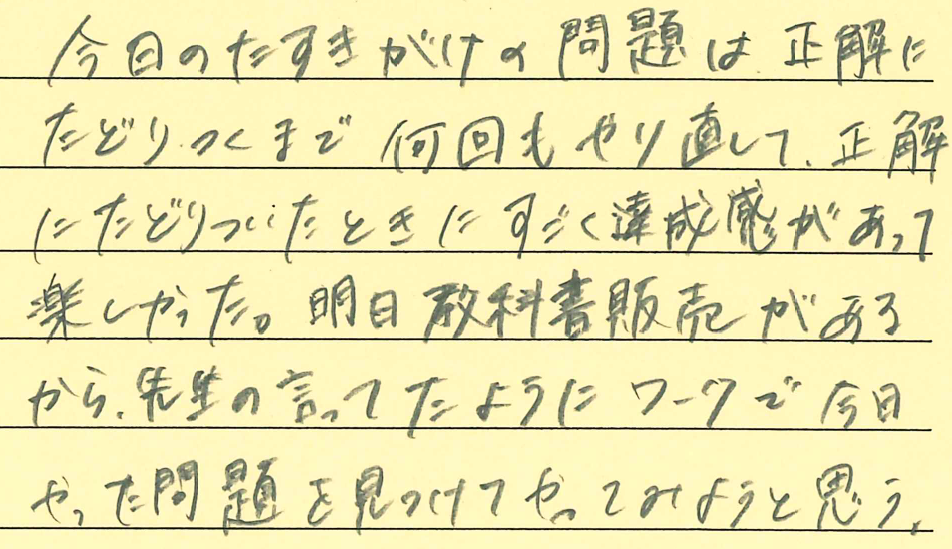 今日のたすきがけの問題は正解に
たどりつくまで何回もやり直して、正解
にたどりついたときにすごく達成感があって
楽しかった。明日教科書販売がある
から、先生の言ってたようにワークで今日
やった問題を見つけてやってみようと思う。